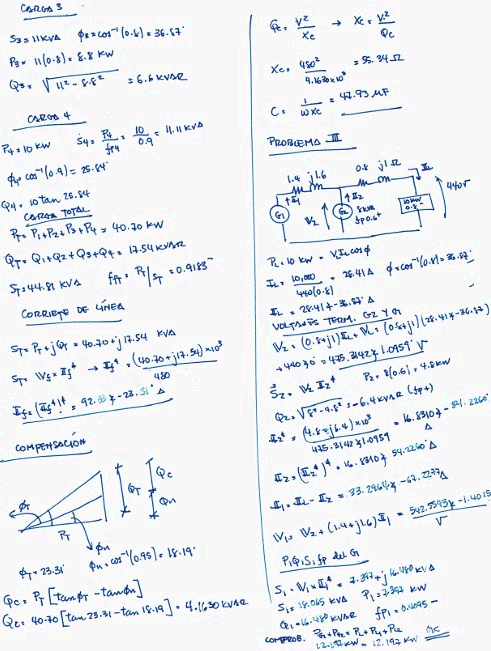 CARGA 3
S3 = 11 KVA   ϕ3 = cos⁻¹(0.8) = 36.87°
P3 = 11(0.8) = 8.8 KW
Q3 = √(11² - 8.8²) = 6.6 KVAR
CARGA 4
P4 = 10 KW   S4 = P4/fp4 = 10/0.9 = 11.11 KVA
ϕ4 = cos⁻¹(0.9) = 25.84°
Q4 = 10 tan 25.84
CARGA TOTAL
PT = P1 + P2 + P3 + P4 = 40.70 KW
QT = Q1 + Q2 + Q3 + Q4 = 17.54 KVAR
ST = 44.81 KVA   fpT = PT/ST = 0.9183
CORRIETE DE LÍNEA
ST = PT + jQT = 40.70 + j17.54 KVA
ST = Vf × If* → If* = (40.70 + j17.54) × 10³ / 480
If = (If*)* = 92.33∠-23.31° A
COMPENSACIÓN
ϕT PT ϕn QT Qc Qn
ϕT = 23.31°   ϕn = cos⁻¹(0.95) = 18.19°
Qc = PT [tan ϕT - tan ϕn]
Qc = 40.70 [tan 23.31 - tan 18.19] = 4.1630 KVAR
Qc = V²/Xc → Xc = V²/Qc
Xc = 480² / 4.1630×10³ = 55.34 Ω
C = 1/WXc = 47.93 µF
PROBLEMA III
1.4 j1.6 0.8 j1 Ω IL
I1 I2
G1 V2 G2 8KVA fp 0.6 10KW 0.8 440V
PL = 10 KW = VL IL cos ϕ
IL = 10,000 / 440(0.8) = 28.41 A   ϕ = cos⁻¹(0.8) = 36.87°
IL = 28.41∠-36.87° A
VOLTAJES TERM. G2 Y G1
V2 = (0.8+j1) IL + VL = (0.8+j1)(28.41∠-36.87)
+440∠0° = 475.3142∠1.0959° V
S2 = V2 I2*   P2 = 8(0.6) = 4.8 KW
Q2 = √(8² - 4.8²) = 6.4 KVAR (fp+)
I2* = (4.8 - j6.4) × 10³ / 475.3142∠1.0959 = 16.8310∠-54.2260° A
I2 = (I2*)* = 16.8310∠54.2260° A
I1 = IL - I2 = 33.2964∠-67.2297 A
V1 = V2 + (1.4 + j1.6) I1 = 542.5593∠-1.4015 V
P,Q,S, fp del G1
S1 = V1 × I1* = 7.397 + j16.480 KVA
S1 = 18.065 KVA   P1 = 7.397 KW
Q1 = 16.480 KVAR   fp1 = 0.4095 -
COMPROB. PG1 + PG2 = PL + PL1 + PL2
12.197 KW = 12.197 KW